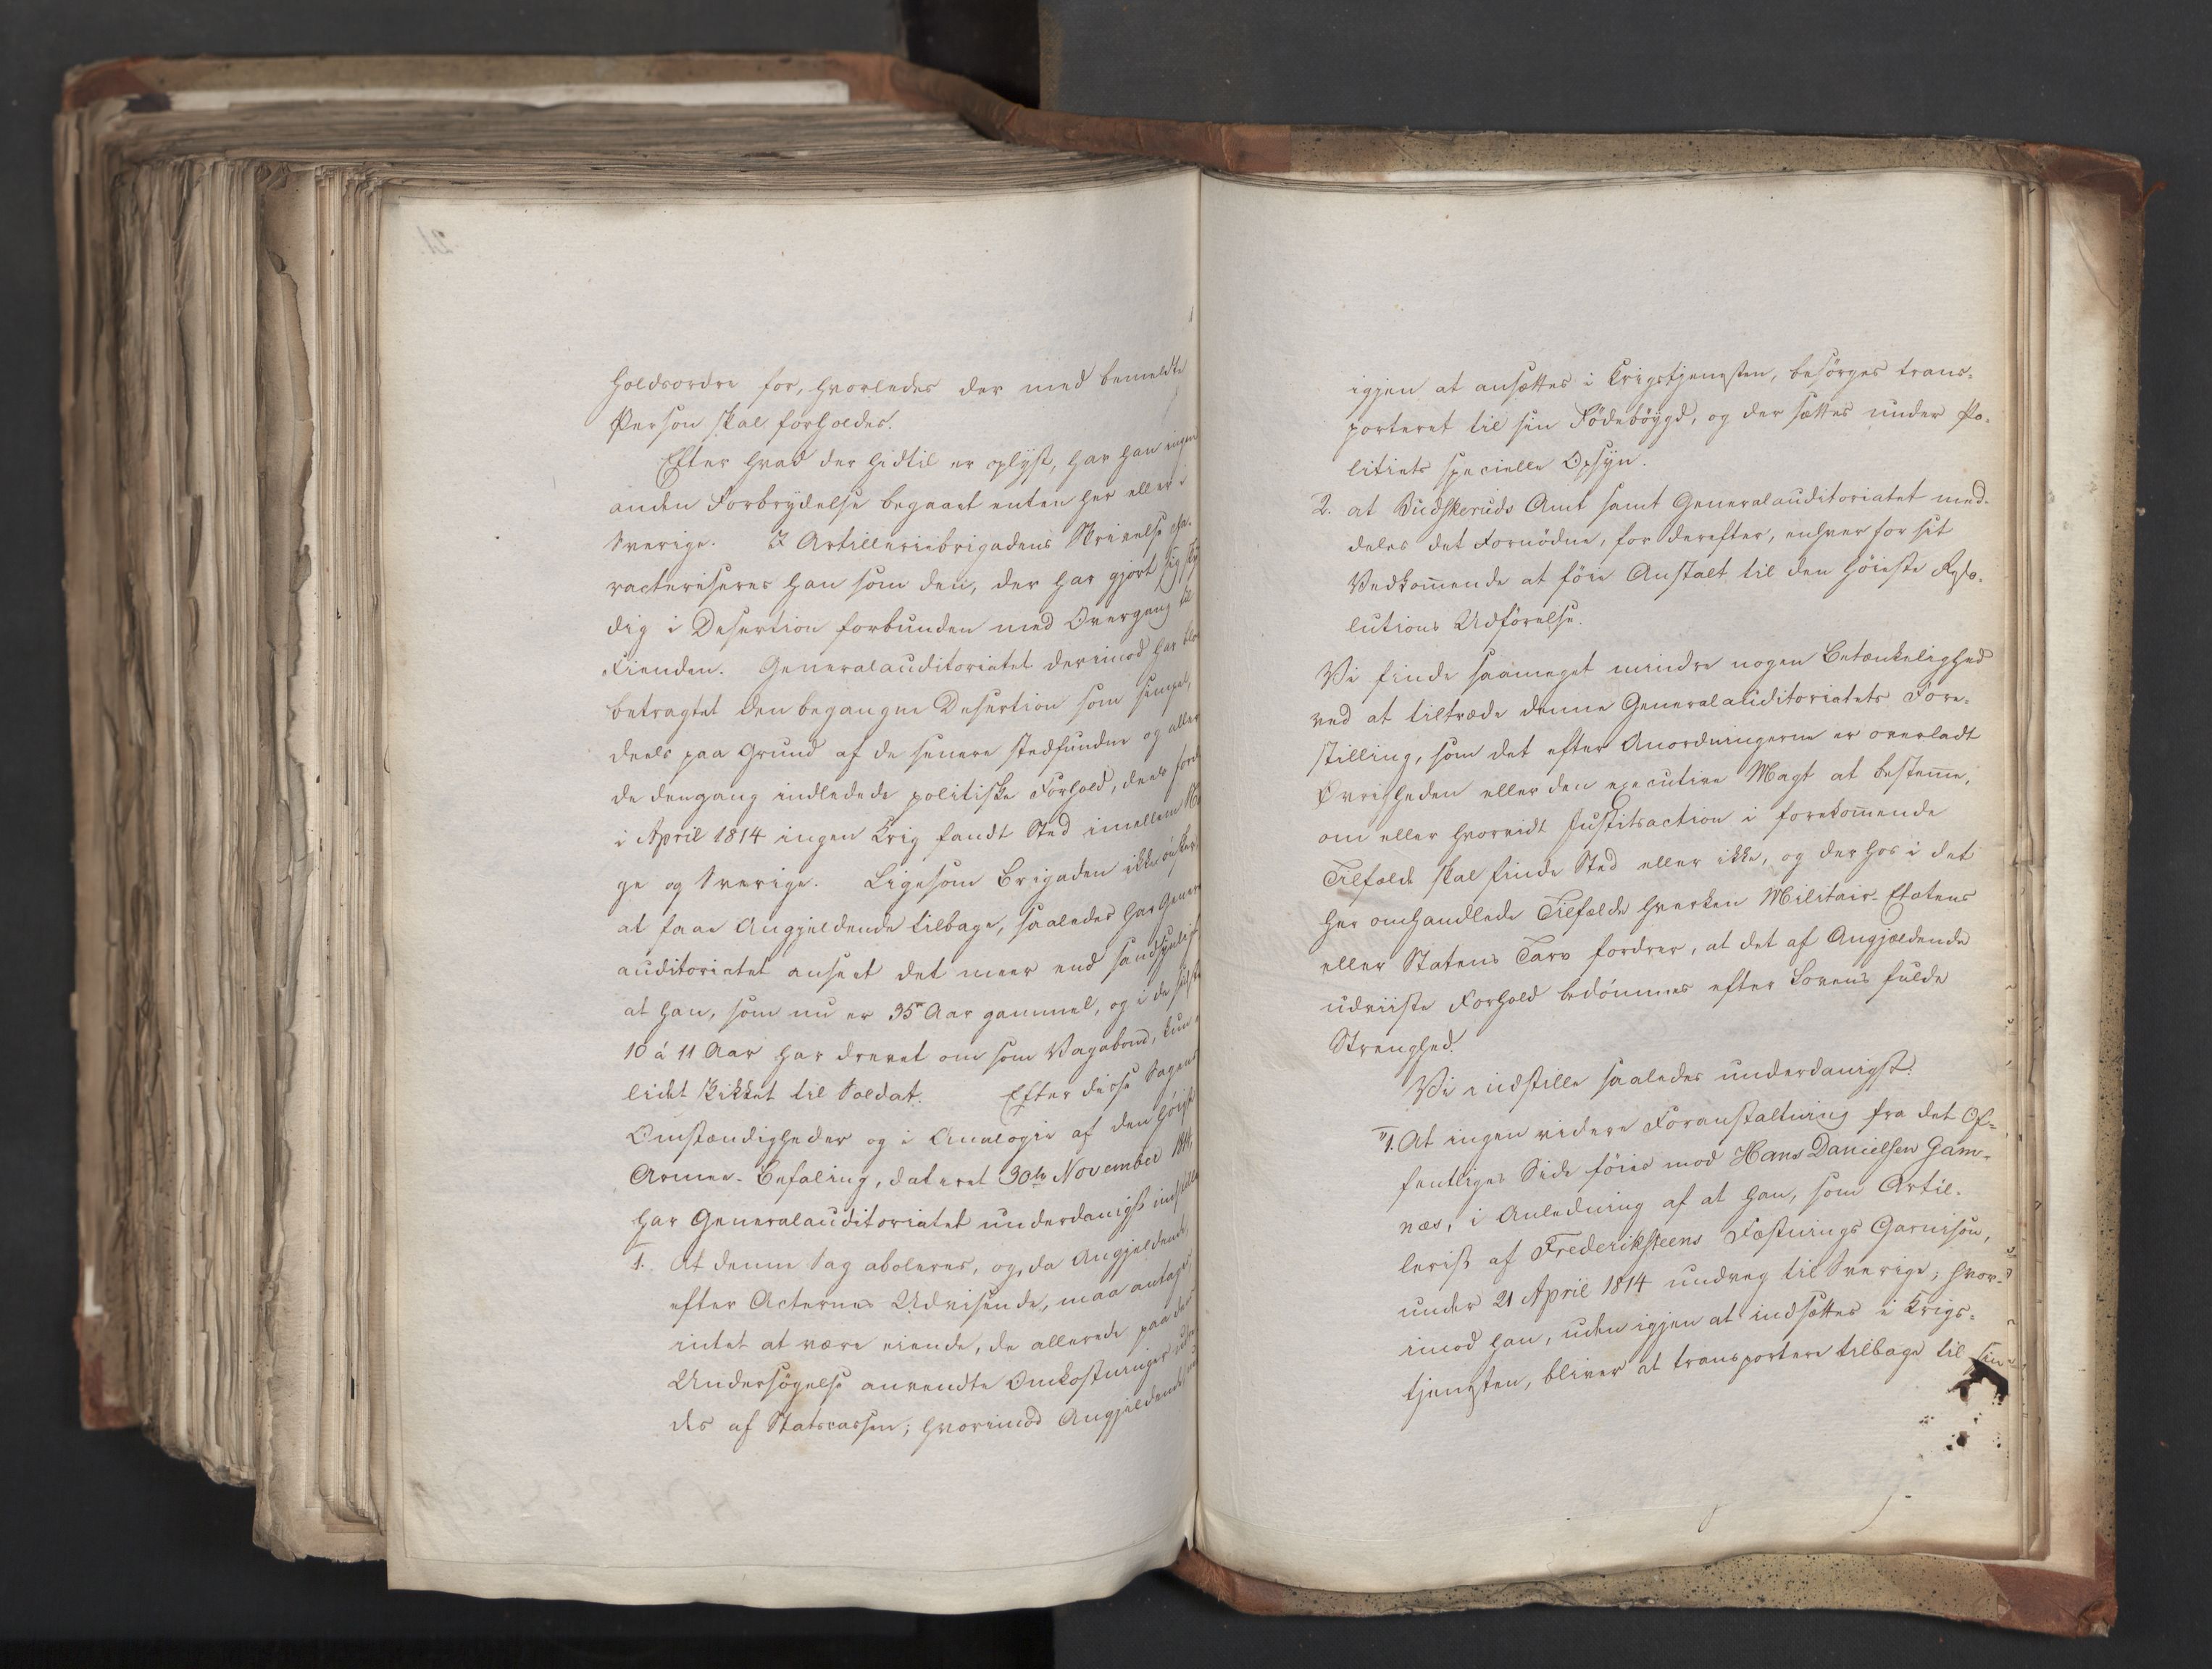 holdsordre for, hvorledes der med bemeldte
Person skal forholdes.
Efter hvad der hidtil er oplyst, har han ingen
anden Forbrydelse begaaet enten her eller i
Sverige. I Artilleriebrigadens Skrivelse cha-
racteriseres han som den, der har gjort sig
dig i Desertion forbunden med Overgang til
Fienden. Generalauditoriatet derimod har
betragtet den begangne Desertion som simpel,
deels paa Grund af de senere stedfundne og aller
de dengang indledede politiske Forhold, deels fordi
i April 1814 ingen Krig fandt Sted imellem
ge og Sverige. Ligesom Brigaden ikke ønsker
at faae Angjeldende tilbage, saaledes har
auditoriatet anseet det meer end sandsynligt
at han, som nu er 35 Aar gammel, og i de sidste
10 á 11 Aar har drevet om som Vagabond, kun
lidet skikket til Soldat. Efter disse Sagens
Omstændigheder og i Analogie af den høist
Armee-Befaling, dateret 30te November 1814,
har Generalauditoriatet underdanigst indstillet
1. At denne Sag aboleres, og, da Angjeldende,
efter Acternes Udvisende, maa antages
intet at være eiende, de allerede paa dens
Undersøgelse anvendte Omkostninger
des af Statscassen; hvorimod Angjeldende
igjen at ansættes i Krigstjenesten, besørges trans-
porteret til sin Fødebøygd, og der sættes under Po-
litiets specielle Opsyn.
2. at Budskeruds Amt samt Generalauditoriatet med-
deles det Fornødne, for derefter, enhver for sit
Vedkom̄ende at føie Anstalt til den høieste Reso-
lutions Udførelse.
Vi finde saameget mindre nogen Betænkelighed
ved at tiltræde denne Generalauditoriatets Fore-
stilling, som det efter Anordningerne er overladt
Øvrigheden eller den executive Magt at bestem̄e,
om eller hvorvidt Justitsaction i forekom̄ende
Tilfælde skal finde Sted eller ikke, og derhos i det
her omhandlede Tilfælde hverken Militair-Etatens
eller Statens Tarv fordrer, at det af Angjældende
udviiste Forhold bedømmes efter Lovens fulde
Strenghed.
Vi indstille saaledes underdanigst:
"1. At ingen videre Foranstaltning fra det Of-
fentliges Side føies mod Hans Danielsen Gam-
næs, i Anledning af at han, som Artil-
lerist af Frederiksteens Fæstnings Garnison,
under 21 April 1814 undveg til Sverige; hvor-
imod han, uden igjen at indsættes i Krigs-
tjenesten, bliver at transportere tilbage til sin